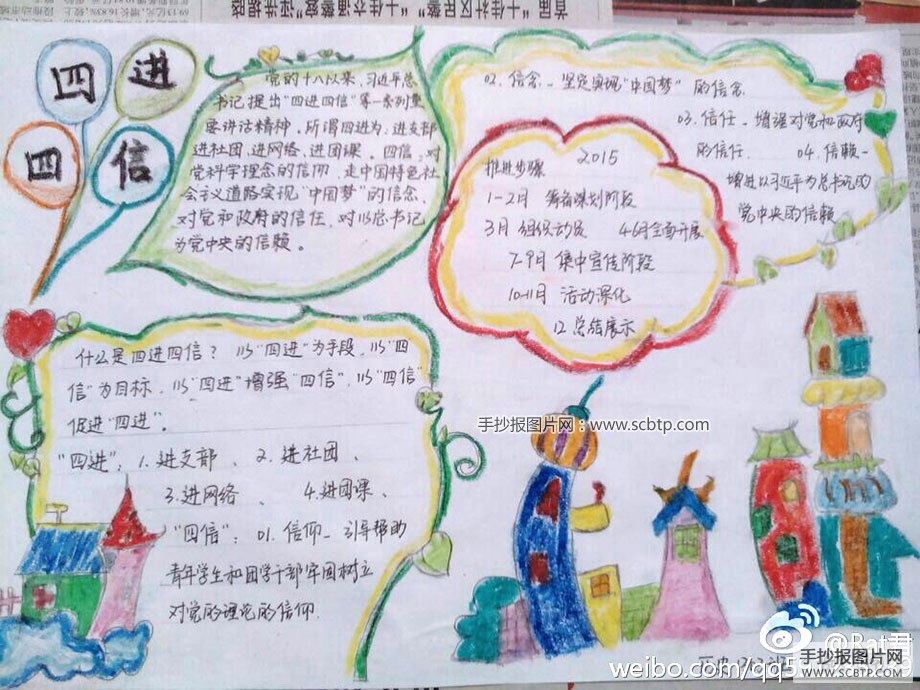 四进
四信
党的十八以来，习近平总
书记提出“四进四信”等一系列重
要讲话精神。所谓四进为：进支部
进社团、进网络、进团课。四信：对
党科学理念的信仰，走中国特色社
会主义道路实现“中国梦”的信念
对党和政府的信任，对以总书记
为党中央的信赖。
02. 信念_坚定实现“中国梦”的信念
03. 信任。增强对党和政府
的信任. 04. 信赖_
增进以习近平为总书记的
党中央的信赖
推进步骤 2015
1-2月 筹备策划阶段
3月 组织动员 4-6月全面开展
7-9月 集中宣传阶段
10-11月 活动深化
12 总结展示
什么是四进四信？以“四进”为手段，以“四
信”为目标，以“四进”增强“四信”，以“四信”
促进“四进”。
“四进”：1.进支部、2.进社团、
3.进网络、4.进团课、
“四信”：01.信仰_引导帮助
青年学生和团学干部牢固树立
对党的理论的信仰.
手抄报图片网：www.scbtp.com
手抄报图片网
WWW.SCBTP.COM